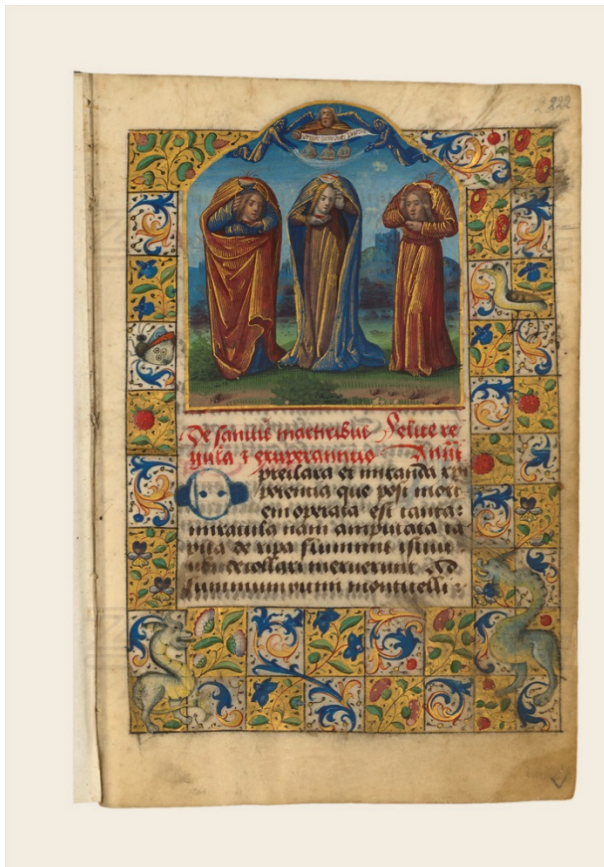 222
De sanctis martiribus Felice re
gula & exuperanntio
O preclara et miranda xpi
potencia que post mort
em operata est tanta
miracula nam amputata ca
pita de ripa fluminis istius
ubi decollari meruerunt Ad
monticelli